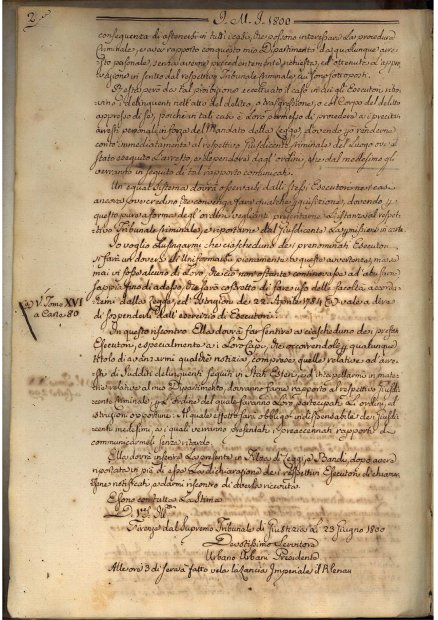 2
A. M. J. 1800
conseguenza di astenersi in tutti i casi, che possono interessare la procedura
Criminale, e aver rapporto con questo mio Dipartimento da qualunque arre-
sto personale, senza averne precedentemente richiesta, ed ottenuta l'appro-
vazione in scritto dal respettivo Tribunale Criminale, cui sono sottoposti.
Resta però da tal proibizione eccettuato il caso in cui gli Esecutori ritro-
vino i delinquenti nell'atto del delitto, o trasgressione, o col Corpo del delitto
appresso di se, poiché in tal caso è Loro permesso di procedere ai precisi
arresti personali in forza del Mandato della Legge, dovendo poi renderne
conto immediatamente al respettivo Giusdicente Criminale del Luogo ove sia
stato eseguito l'arresto, e dependere dagli ordini, che dal medesimo gli
verranno in seguito di tal rapporto comunicati.
Un egual sistema dovrà osservarsi dalli stessi Esecutori nei casi
ancora, ove credino che convenga fare qualche perquisizione, dovendo
questo pure a forma degl'ordini veglianti presentarne l'istanza al respet-
tivo Tribunale Criminale, e riportarne dal Giusdicente la permissione in carta.
Io voglio lusingarmi che ciascheduno dei prenominati Esecutori
si farà un dovere di uniformarsi pienamente a queste avvertenze, ma se
mai vi fosse alcuno di Loro, che ciò non ostante continuasse ad abusarne
sappia fino di adesso, che sarò costretto di fare uso della facoltà accorda-
temi dalla Legge, ed Istruzioni de 22. Aprile 1784 (a) vale a dire
di sospenderli dall'esercizio di Esecutori.
a) V. Tomo XVI
a Carte 80
In questo riscontro Ella dovrà far sentire a ciascheduno dei predetti
Esecutori, e specialmente a i Loro Capi, che occorrendole per qualunque
titolo di avanzarmi qualche notizia, comprese quelle relative ad arre-
sti di Sudditi delinquenti seguiti in Stati Esteri, ed it appellarmi in mate-
rie relative al mio Dipartimento, dovranno farne rapporto al respettivo Giusdi-
cente Criminale, per ordine del quale saranno Loro partecipati gli ordini, ed
istruzioni opportune. Al quale effetto sarà obbligo indispensabile dei Giusdi-
centi medesimi a i quali verranno presentati i preaccennati rapporti di
comunicarmeli senza ritardo.
Ella dovrà inserire la presente in Filza di Leggi, e Bandi, dopo avere
riportata in piè di essa la dichiarazione dei respettivi Esecutori di chiara-
zione notificati, e darmi riscontro di averla ricevuta.
E sono con tutta la stima
D. VS. Ill.ma
Firenze dal Supremo Tribunale di Giustizia li 23 Giugno 1800
Devotissimo Servitore
Urbano Urbani Presidente
Alle ore 3 di sera à fatto vela la Lancia Imperiale il Klenau